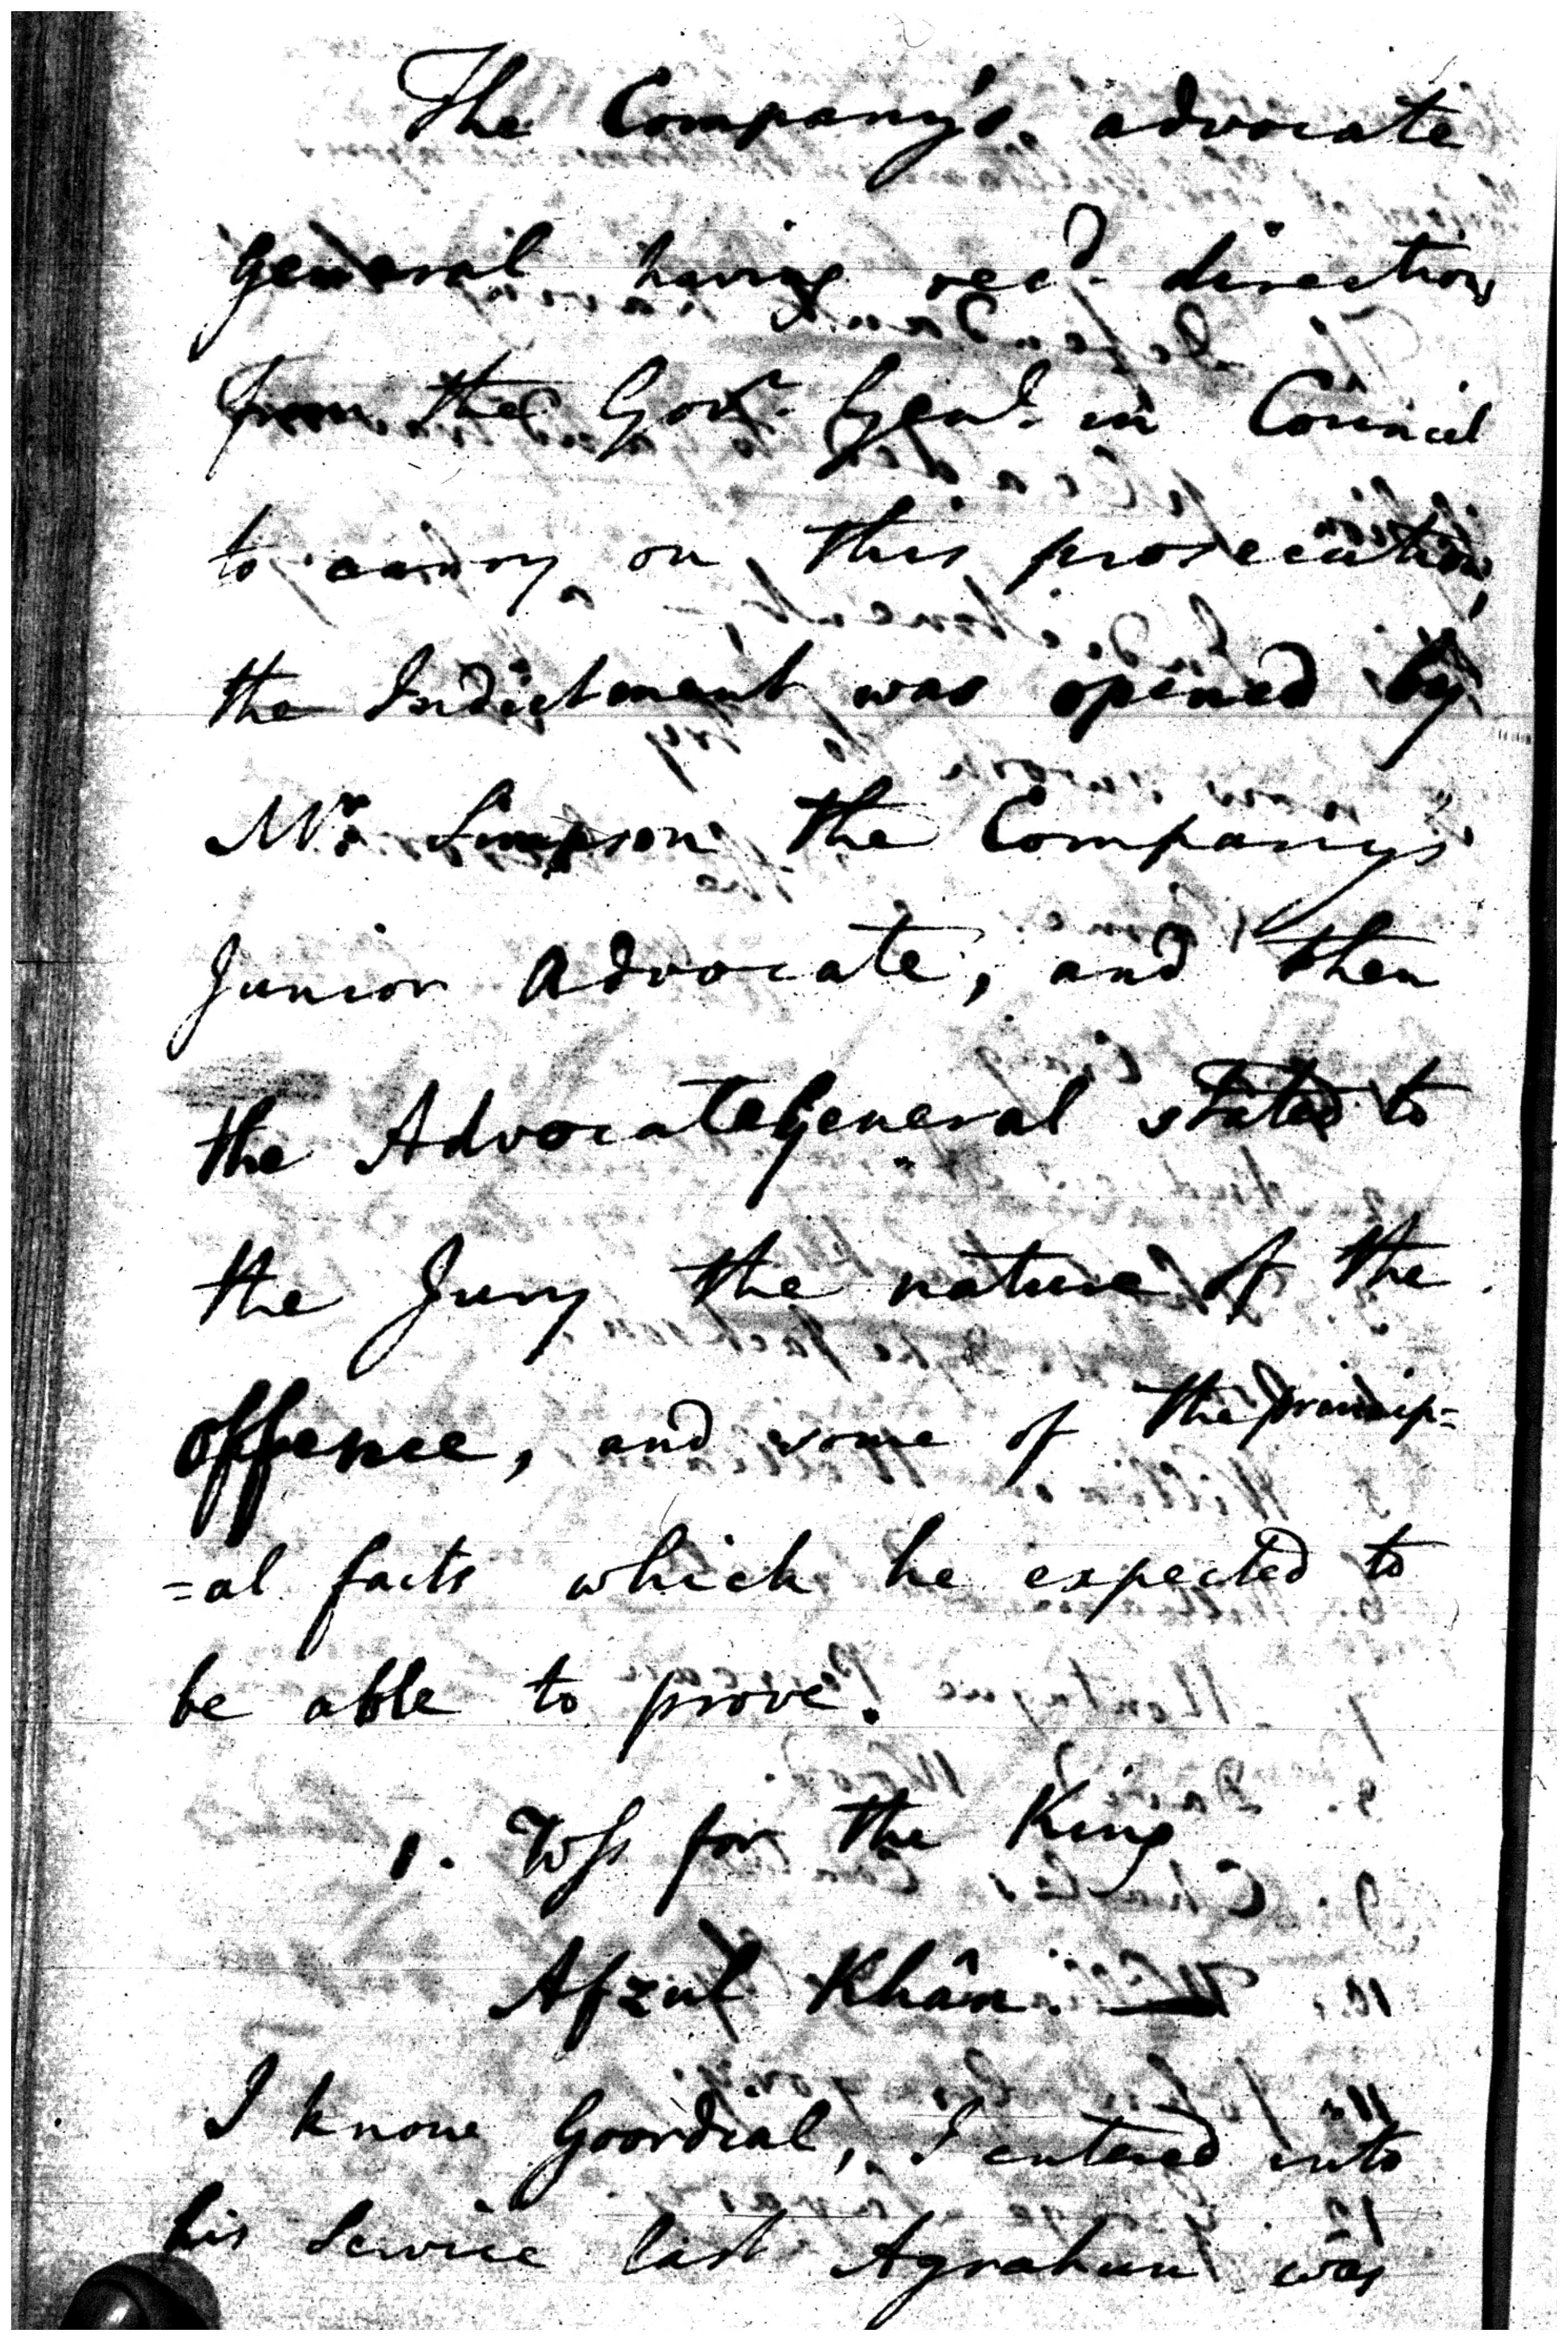 The Company's advocate
General having rec.d directions
from the Gov.r Gen.l in Council
to carry on this prosecution,
the Indictment was opened by
Mr. Simpson the Company's
Junior Advocate, and then
the Advocate General stated to
the Jury the nature of the
offence, and some of the princip=
=al facts which he expected to
be able to prove.
1. Wss for the King
Afzul Khân.
I know Goordial, I entered into
his service last Agrahun was